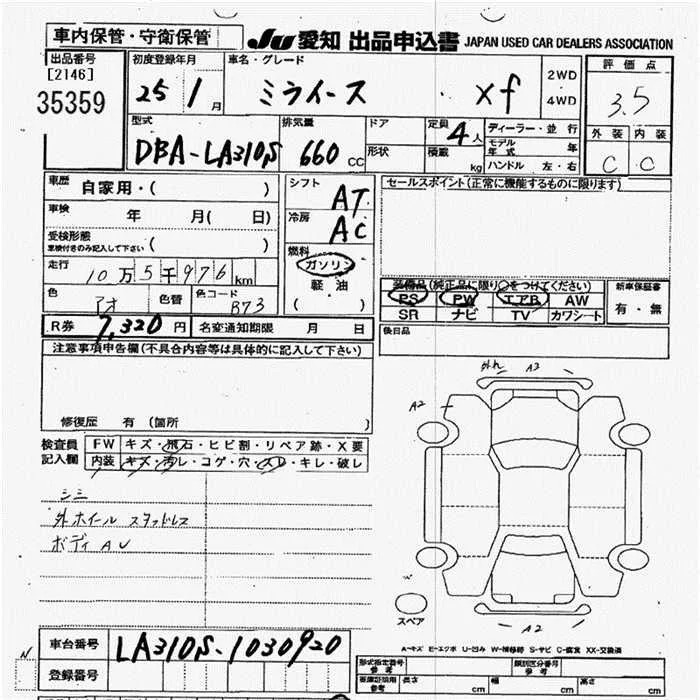 車内保管・守衛保管
JU 愛知 出品申込書 JAPAN USED CAR DEALERS ASSOCIATION
出品番号
[2146]
35359
初度登録年月
25 / 1 月
車名・グレード
ミライース xf
2WD
4WD
評価点
3.5
外装 内装
C C
型式
DBA-LA310S
排気量
660 CC
ドア
形状
定員
4人
積載
kg
ディーラー・並行
モデル年式 年
ハンドル 左・右
車歴
自家用・( )
車検
年 月( 日)
受検形態
車検付きのみ記入して下さい ( )
走行
10万5千976 km
色
アオ
色替
色コード
B73
シフト
AT
冷房
AC
燃料
ガソリン
軽油
( )
セールスポイント(正常に機能するものに限ります)
装備品(純正品に限り○をつけてください)
PS PW エアB AW
SR ナビ TV カワシート
新車保証書
有・無
後日品
R券 7,320 円
名変通知期限 月 日
注意事項申告欄(不具合内容等は具体的に記入して下さい)
修復歴 有 (箇所 )
検査員
記入欄
FW キズ・飛石・ヒビ割・リペア跡・X要
内装 キズ・汚レ・コゲ・穴・スレ・キレ・破レ
シミ
外ホイール スタッドレス
ボディ AU
外れ A3
A2
スペア
A2
A-キズ E-エクボ U-凹み W-補修跡 S-サビ C-腐食 XX-交換済
車台番号
LA310S-1030920
登録番号
N
形式指定番号
参考
類別区分番号
参考
車庫証明用
参考
長さ cm
幅 cm
高さ cm